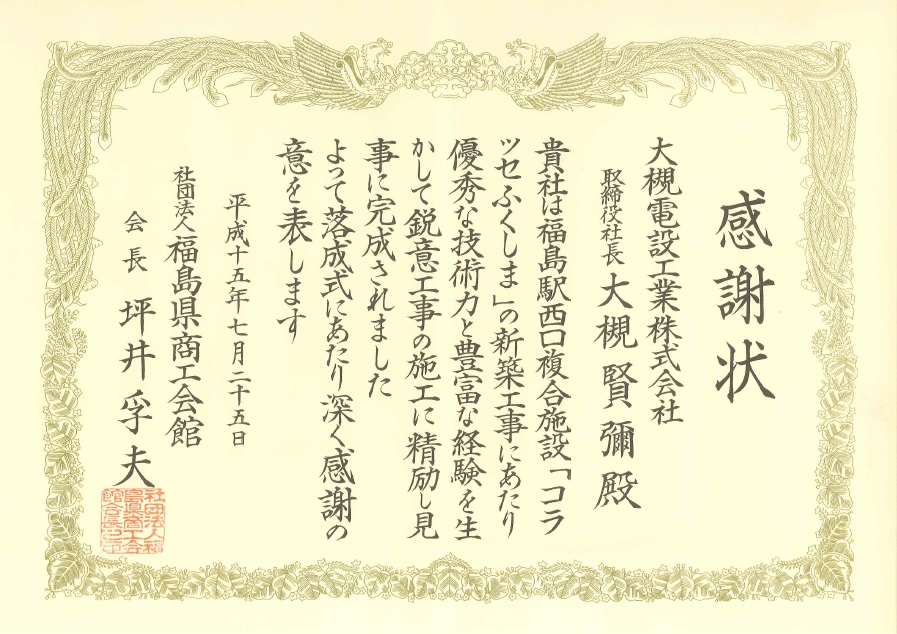 感謝状
大槻電設工業株式会社
取締役社長 大槻賢彌殿
貴社は福島駅西口複合施設「コラ
ッセふくしま」の新築工事にあたり
優秀な技術力と豊富な経験を生
かして鋭意工事の施工に精励し見
事に完成されました
よって落成式にあたり深く感謝の
意を表します
平成十五年七月二十五日
社団法人 福島県商工会館
会長 坪井孚夫